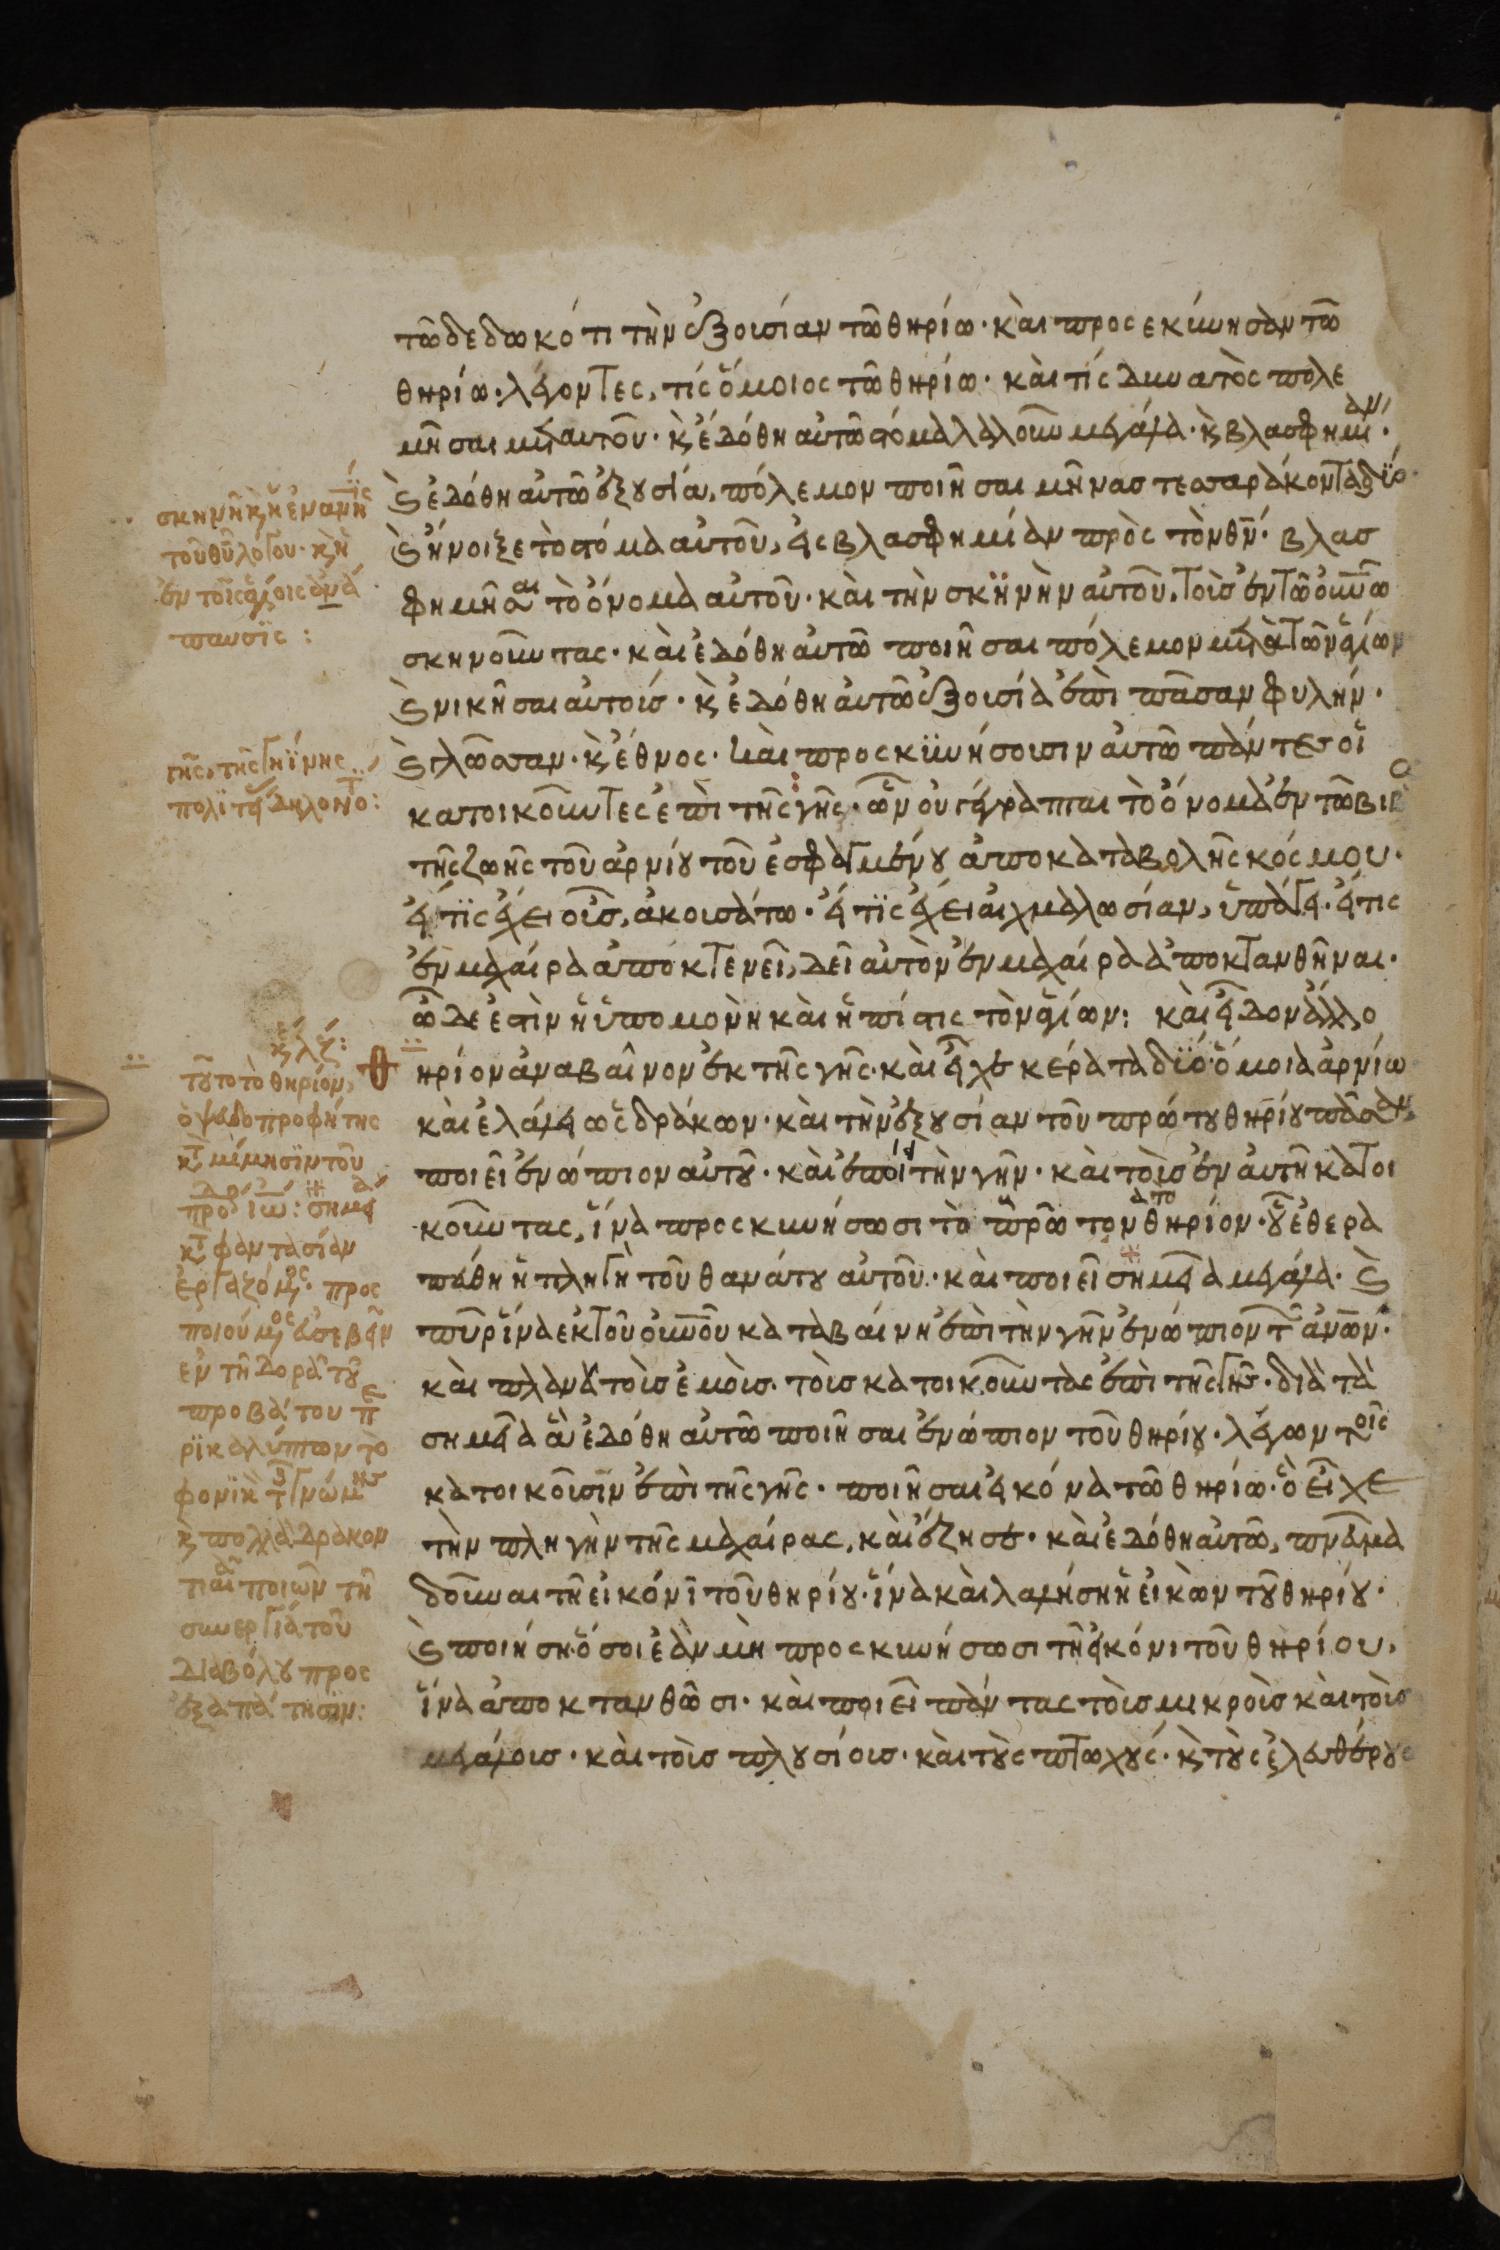 τῶ δεδωκότι τὴν ἐξουσίαν τῶ θηρίω· καὶ προσεκύνησαν τῶ
θηρίω· λέγοντες, τίς ὅμοιος τῶ θηρίω· καὶ τίς δυνατὸς πολε
μῆσαι μετ αυτοῦ· κ ἐδόθη αὐτῶ στόμα λαλοῦν μεγάλα· κ βλασφημίαν·
κ ἐδόθη αὐτῶ ἐξουσία, πόλεμον ποιῆσαι μῆνας τεσσαράκοντα δϊό·
κ ἤνοιξε τὸ στόμα αὐτοῦ, εἰς βλασφημίαν πρὸς τὸν θν· βλασ
φημῆσαι τὸ ὄνομα αὐτοῦ· καὶ τὴν σκηνὴν αὐτοῦ, τοὶς ἐν τῶ οὐνῶ
σκηνοῦντας· καὶ ἐδόθη αὐτῶ ποιῆσαι πόλεμον μετὰ τῶν ἁγίων
κ νικῆσαι αὐτούς· κ ἐδόθη αὐτῶ ἐξουσία ἐπὶ πᾶσαν φυλήν·
κ γλῶσσαν· κ ἔθνος· καὶ προσκϋνήσουσιν αὐτῶ πάντες οἱ
κατοικοῦντες ἐπὶ τῆς γῆς· ὧν οὐ γέγραπται τὸ ὄνομα ἐν τῶ βιβ
τῆς ζωῆς τοῦ ἀρνίου τοῦ ἐσφαγμένου ἀπο καταβολῆς κόσμου·
εἴ τϊς ἔχει οὖς, ἀκουσάτω· εἴ τϊς ἔχει αἰχμαλωσίαν, ὑπάγει· εἴ τις
ἐν μαχαίρα ἀποκτενεῖ, δεῖ αὐτὸν ἐν μαχαίρα ἀποκτανθῆναι·
ὧδε ἐστὶν ἡ ὑπομονὴ καὶ ἡ πίστις τὸν ἁγίων: καὶ εἶδον ἄλλο
θηρίον ἀναβαῖνον ἐκ τῆς γῆς· καὶ εἶχε κέρατα δϊό· ὅμοια ἀρνίω
καὶ ἐλάλει ὡς δράκων· καὶ τὴν ἐξουσίαν τοῦ πρώτου θηρίου πᾶσαν
ποιεῖ ἐνώπιον αὐτοῦ· καὶ ἐποίει τὴν γῆν· καὶ τοὶς ἐν αὐτῆ κατοι
κοῦντας, ἵνα προσκυνήσωσι τὸ πρῶτον θηρίον· οὗ ἐθερα
πεύθη ἡ πληγὴ τοῦ θανάτου αὐτοῦ· καὶ ποιεῖ σημεῖα μεγάλα· κ
πῦρ ἵνα ἐκ τοῦ οὐνοῦ καταβαίνη ἐπὶ τὴν γῆν ἐνώπιον τ ἀνων·
καὶ πλανᾶ τοὶς ἐμοὶς· τοὶς κατοικοῦντας ἐπὶ τῆς γῆς· διὰ τὰ
σημεῖα ἃ ἐδόθη αὐτῶ ποιῆσαι ἐνώπιον τοῦ θηρίου· λέγων τοῖς
κατοικοῦσιν ἐπὶ τῆς γῆς· ποιῆσαι εἰκόνα τῶ θηρίω· ὃ εἶχε
τὴν πληγὴν τῆς μαχαίρας, καὶ ἔζησε· καὶ ἐδόθη αὐτῶ, πνεῦμα
δοῦναι τῆ εἰκόνι τοῦ θηρίου· ἵνα καὶ λαλήση ἡ εἰκὼν τοῦ θηρίου·
κ ποιήση· ὅσοι ἐὰν μὴ προσκυνήσωσι τῆ εἰκόνι τοῦ θηρίου,
ἵνα ἀποκτανθῶσι· καὶ ποιεῖ πάντας τοὶς μικροὶς καὶ τοὶς
μεγάλοις· καὶ τοὶς πλουσίοις· καὶ τοὺς πτωχούς· κ τοὺς ἐλευθέρους
σκηνὴ κ ἡ ἐν
τοῦ θῦ λόγου· κ ἡ
ἐν τοῖς ἁγίοις ἀνά
παυσϊς:
γῆς, τῆς γηΐνης
πολϊτεί δηλονότ:
κε λζ:
τοῦτο τὸ θηρίον,
ὁ ψευδοπροφήτης
κτ μίμησϊν τοῦ
προδρ ἰω: σημεῖα
κτ φαντασίαν
ἐργαζόμενος· προς
ποιούμενος εὐσεβεῖν
ἐν τῆ δορᾶ τοῦ
προβάτου πε
ρϊκαλύπτων τὸ
φονϊκὸν τ γνώμης
κ πολλὰ δράκον
τιαῖα ποιῶν τῆ
συνεργία τοῦ
διαβόλου προς
ἐξαπάτησϊν: